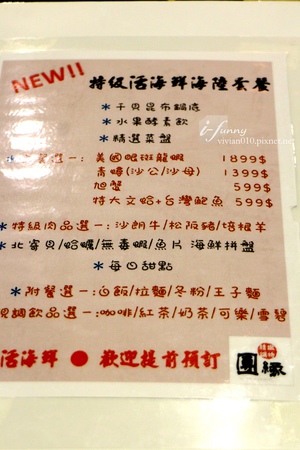 NEW!!
特級活海鮮海陸套餐
*干貝昆布鍋底
*水果酵素飲
*精選菜盤
i-funny
vivian010.pixnet.net
選一:美國龍斑龍蝦 1899$
青蟳(沙公/沙母) 1399$
旭蟹 599$
特大文蛤+台灣鮑魚 599$
*特級肉品選一:沙朗牛/松阪豬/培根羊
*北寄貝/蛤蠣/無毒蝦/魚片 海鮮拼盤
*每日甜點
*附餐選一:白飯/拉麵/冬粉/王子麵
調飲品選一:咖啡/紅茶/奶茶/可樂/雪碧
活海鮮 ● 歡迎提前預訂
圓緣